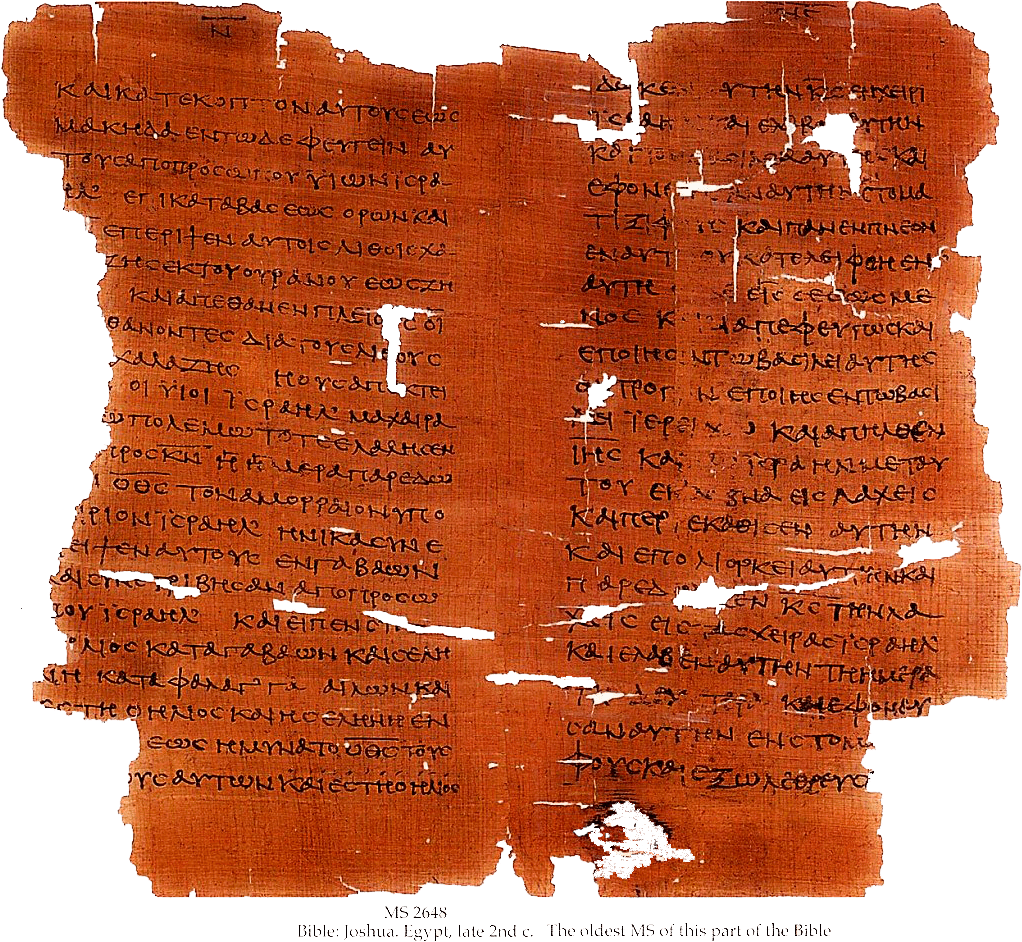 Ν
ΚΑΙΚΑΤΕΚΟΠΤΟΝΑΥΤΟΥϹΕΩϹ
ΜΑΚΗΔΑΕΝΤΩΔΕΦΕΥΓΕΙΝ ΑΥ
ΤΟΥϹΑΠΟΠΡΟϹΩΠΟΥ ΥΙΩΝΙϹΡΑ
ΗΛ ΕΠΙΚΑΤΑΒΑϹΕΩϹ ΟΡΩΝΚΑΙ
ΕΠΕΡΙΨΕΝΑΥΤΟΙϹΛΙΘΟΙϹΧΑ
ΖΗϹΕΚΤΟΥΟΥΡΑΝΟΥ ΕΩϹΖΗ
ΚΑΙΑΠΕΘΑΝΕΝΠΛΕΙΟΥϹΟΙ
ΘΑΝΟΝΤΕϹ ΔΙΑΤΟΥϹΛΙΘΟΥϹ
ΧΑΛΑΖΗϹ ΗΟΥϹΑΠΕΚΤΕΙ
ΟΙΥΙΟΙ ΙϹΡΑΗΛ ΜΑΧΑΙΡΑ
ΩΠΟΛΕΜΩ ΤΟΤΕΕΛΑΛΗϹΕΝ
ΠΡΟϹΚΝ Η ΗΜΕΡΑΠΑΡΕΔΩ
ΟΘϹ ΤΟΝΑΜΟΡΡΑΙΟΝΥΠΟ
ΡΙΟΝΙϹΡΑΗΛ ΗΝΙΚΑϹΥΝΕ
ΕΙΨΕΝΑΥΤΟΥϹ ΕΝΓΑΒΑΩΝ
ΚΑΙϹΥΝΕΤΡΙΒΗϹΑΝΑΠΟΠΡΟϹΩ
ΠΟΥΙϹΡΑΗΛ ΚΑΙΕΙΠΕΝϹΤΗ
ΛΙΟϹΚΑΤΑΓΑΒΑΩΝΚΑΙϹΕΛΗ
ΝΗ ΚΑΤΑΦΑΛΑΓΓΑ ΑΙΛΩΝΚΑΙ
ΕϹΤΗΟΗΛΙΟϹΚΑΙΗϹΕΛΗΝΗΕΝ
ΕΩϹΗΜΥΝΑΤΟΟΘϹΤΟΥϹ
ΟΥϹΑΥΤΩΝΚΑΙΕϹΤΗΟΗΛΙΟϹ
ΔΩΚΕΝ ΑΥΤΗΝΚϹΕΝΧΕΙΡΙ
ΙϹΡΑΗΛ ΚΑΙΕΛΑΒΟΝΑΥΤΗΝ
ΚΑΙ ΑΥΤΗϹ ΚΑΙ
ΕΦΟΝΕΥϹΑΝΑΥΤΗΝϹΤΟΜΑ
ΤΙΞΙΦΟΥϹ ΚΑΙΠΑΝΕΝΠΝΕΟΝ
ΕΝΑΥΤΗΟΥΚΑΤΕΛΕΙΦΘΗΕΝ
ΑΥΤΗ ΕΙϹ ϹΕϹΩϹΜΕ
ΝΟϹ ΚΑΙΔΙΑΠΕΦΕΥΓΩϹΚΑΙ
ΕΠΟΙΗϹΑΝΤΩΒΑϹΙΛΕΙΑΥΤΗϹ
ΟΝΤΡΟΠΟΝΕΠΟΙΗϹΕΝΤΩΒΑϹΙ
ΛΕΙ ΙΕΡΕΙΧΩ ΚΑΙΑΠΗΛΘΕΝ
ΙΗϹ ΚΑΙ ΙϹΡΑΗΛΜΕΤΑΥ
ΤΟΥ ΕΚΛΕΒΝΑ ΕΙϹ ΛΑΧΕΙϹ
ΚΑΙΠΕΡΙΕΚΑΘΙϹΕΝ ΑΥΤΗΝ
ΚΑΙΕΠΟΛΙΟΡΚΕΙΑΥΤΗΝΚΑΙ
ΠΑΡΕΔΩΚΕΝ ΚϹΤΗΝΛΑ
ΧΕΙϹ ΕΙϹΤΑϹΧΕΙΡΑϹΙϹΡΑΗΛ
ΚΑΙΕΛΑΒΕΝΑΥΤΗΝΤΗΗΜΕΡΑ
ΤΗ ΔΕΥΤΕΡΑ ΚΑΙΕΦΟΝΕΥ
ϹΑΝΑΥΤΗΝ ΕΝϹΤΟΜΑ
ΦΟΥϹΚΑΙΕΞΩΛΕΘΡΕΥϹΑ
MS 2648
Bible: Joshua. Egypt, late 2nd c. The oldest MS of this part of the Bible